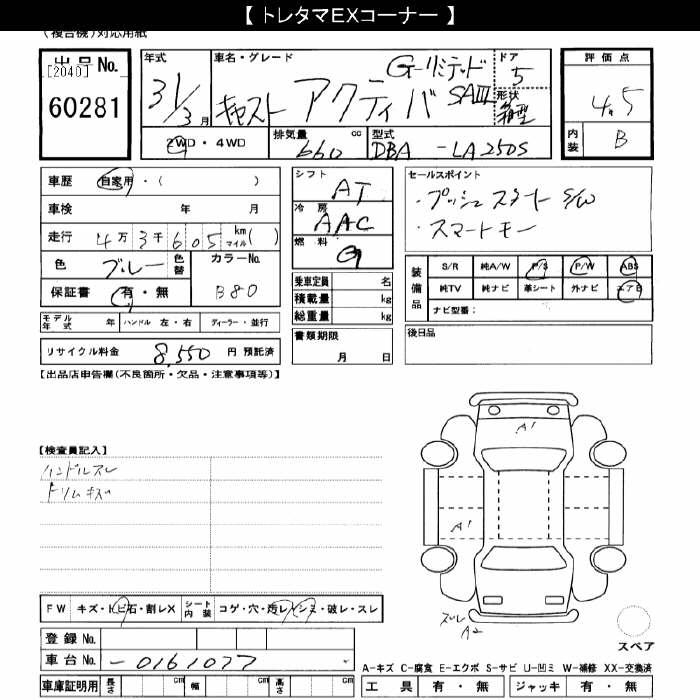 【 トレタマEXコーナー 】
(複合機)対応用紙
出品No.
[2040]
60281
年式
31/3月
車名・グレード
キャスト アクティバ G-リミテッド SAⅢ
ドア
5
形状
箱型
評価点
4.5
内装
B
2WD・4WD
排気量
660 cc
型式
DBA-LA250S
車歴 自家用・( )
車検 年 月
走行 4万3千605 km マイル( )
色 ブルー 色替 カラーNo.
保証書 有・無 B80
モデル年式 年 ハンドル 左・右 ディーラー・並行
リサイクル料金 8,550 円 預託済
シフト
AT
冷房
AAC
燃料
G
乗車定員 名
積載量 kg
総重量 kg
書類期限
月 日
セールスポイント
・プッシュスタート S/W
・スマートキー
装備品
S/R 純A/W P/S P/W ABS
純TV 純ナビ 革シート 外ナビ エアB
ナビ型番:
後日品
【出品店申告欄(不良箇所・欠品・注意事項等)】
【検査員記入】
ハンドルスレ
トリムキズ
A1
A1
スレ
A2
スペア
FW キズ・トビ石・割レX シート内装 コゲ・穴・汚レ・シミ・破レ・スレ
登録No.
車台No. -0161077
車庫証明用 長さ cm 幅 cm 高さ cm
A-キズ C-腐食 E-エクボ S-サビ U-凹ミ W-補修 XX-交換済
工具 有・無 ジャッキ 有・無